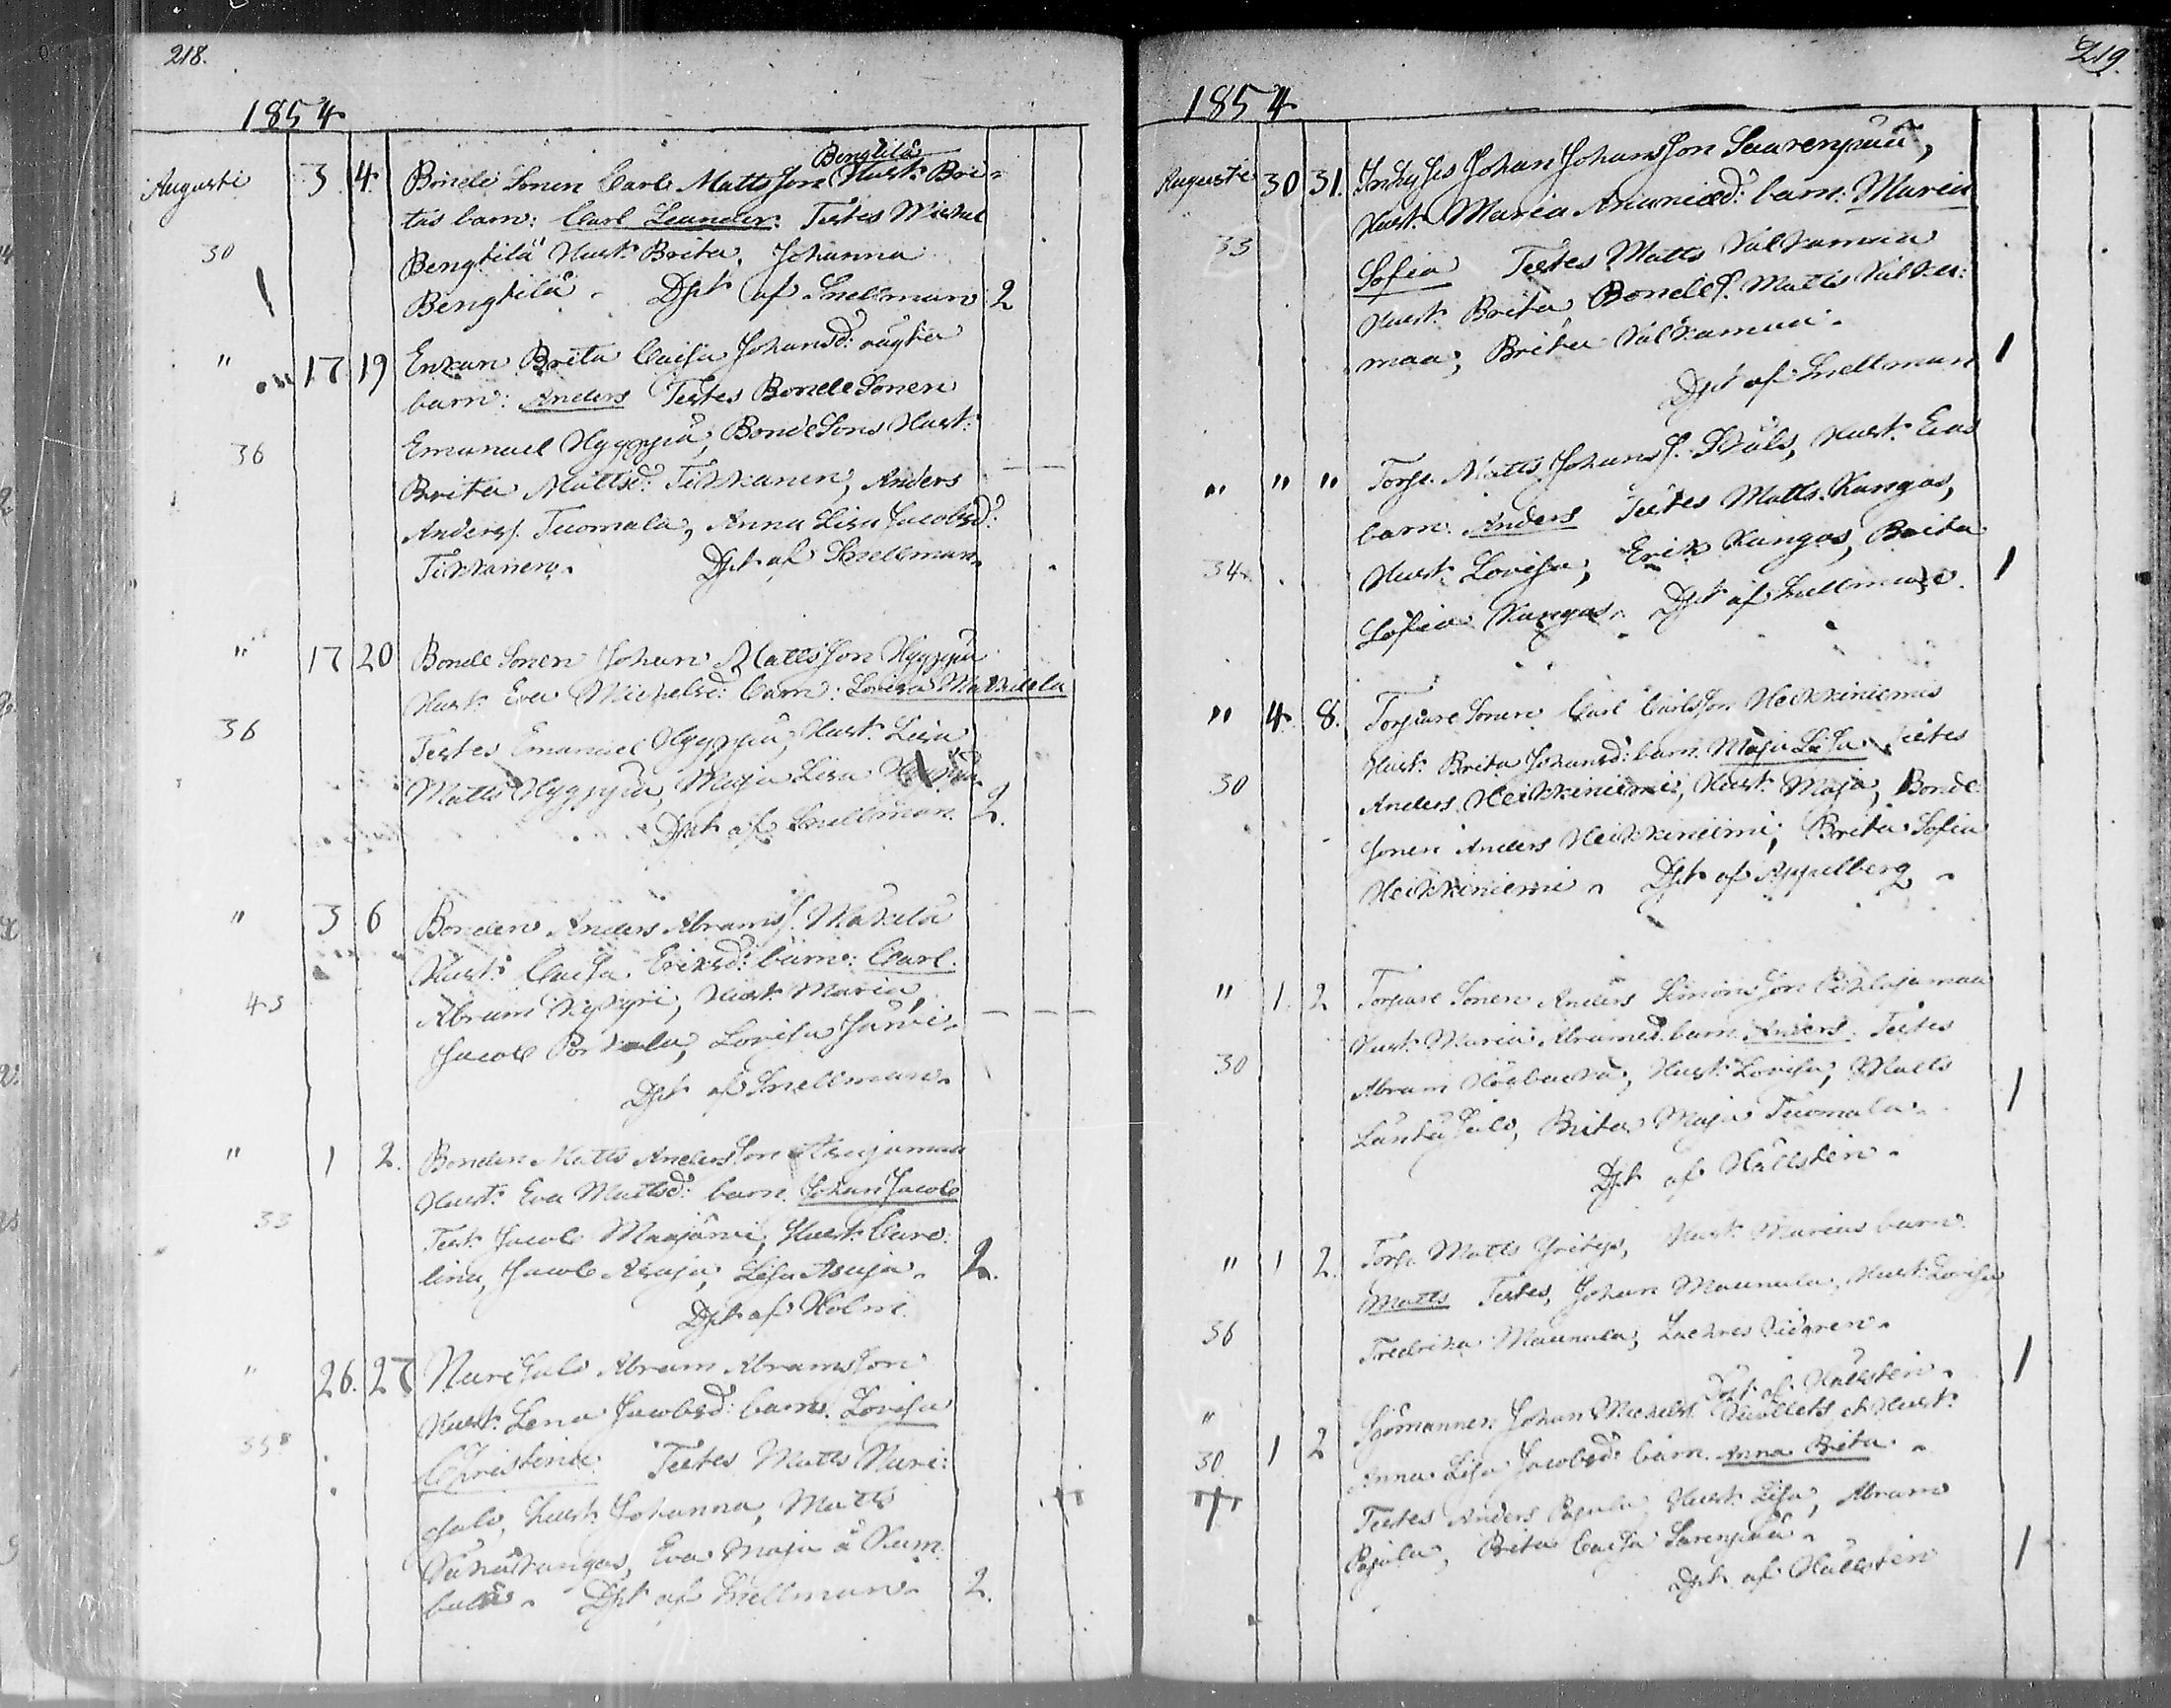 218.
1854
Augusti 3 4 Bonde Sonen Carl Mattsson Bengtilä Hust. Bri-
tas barn: Carl Leander. Testes Michel
30 Bengtilä Hust. Brita, Johanna
Bengtilä. Dpt af Snellman 2
" 17 19 Enkan Brita Caisa Johansd: oägta
barn: Anders Testes Bonde Sonen
36 Emanuel Hyyppä, BondeSons Hust:
Brita Mattsd: Tikkanen, Anders
Anderss. Tuomala, Anna Lisa Jacobsd:
Tikkanen. Dpt af Snellman.
" 17 20 Bonde Sonen Johan Mattsson Hyyppä
Hust. Eva Michelsd: barn: Lovisa Mathilda
36 Testes Emanuel Hyyppä, Hust. Lisa
Matts Hyyppä, Maja Lisa Hyyppä
Dpt af Snellman. 2.
" 3 6 Bonden Anders Abramss. Mäkelä
Hust: Caisa Eriksd: barn: Carl.
43 Abram Nyyri, Hust. Maria,
Jacob Porkala, Lovisa Järvi.
Dpt af Snellman.
" 1 2. Bonden Matts Andersson
Hust: Eva Mattsd: barn. Johan Jacob
33 Test. Jacob Maajärvi, Hust. Caro:
lina, Jacob Asuja, Lisa Asuja. 2.
Dpt af Holm.
" 26. 27 Abram Abramsson
Hust. Lena Jacobsd: barn. Lovisa
35 Christina Testes Matts
Hust. Johanna, Matts
Eva Maja å
Dpt af Snellman. 2.
219.
1854
Augusti 30 31. Inhyses Johan Johansson Saarenpää,
Hust. Maria Ananiæd: barn: Maria
33 Sofia Testes Matts Valkamaa
Hust. Brita Bondes. Matts Valka:
maa, Brita Valkamaa.
Dpt af Snellman 1
" " " Torp. Matts Johanss. Hust. Evas
barn. Anders Testes Matts Kangas,
34 Hust. Lovisa, Erik Kangas, Brita 1
Sofia Kangas. Dpt af Snellman.
" 4. 8. Torpare Sonen Carl Carlsson Heikkiniemis
Hust. Brita Johansd: barn. Maja Lisa Testes
30 Anders Heikkiniemi, Hust. Maja, Bonde
sonen Anders Heikkiniemi, Brita Sofia
Heikkiniemi. Dpt af Appelberg.
" 1. 2 Torpare Sonen Anders Simonsson Pihlajamaa
Hust. Maria Abramsd. barn. Anders. Testes
30 Abram Högbacka, Hust. Lovisa, Matts
Brita Maja Tuomala. 1
Dpt af Hällsten.
" 1 2. Torp. Matts Hust. Marias barn
Matts Testes, Johan Maunula, Hust. Lovisa,
36 Fredrika Maunula, Zachres
Dpt af Hällsten. 1
" 1 2 Sjömannen Johan Michelss. et Hust.
30 Anna Lisa Jacobsd: barn. Anna Brita.
Testes Anders Pajula Hust. Lisa, Abram
Pajula, Brita Caisa Sarenpää.
Dpt af Hällsten 1